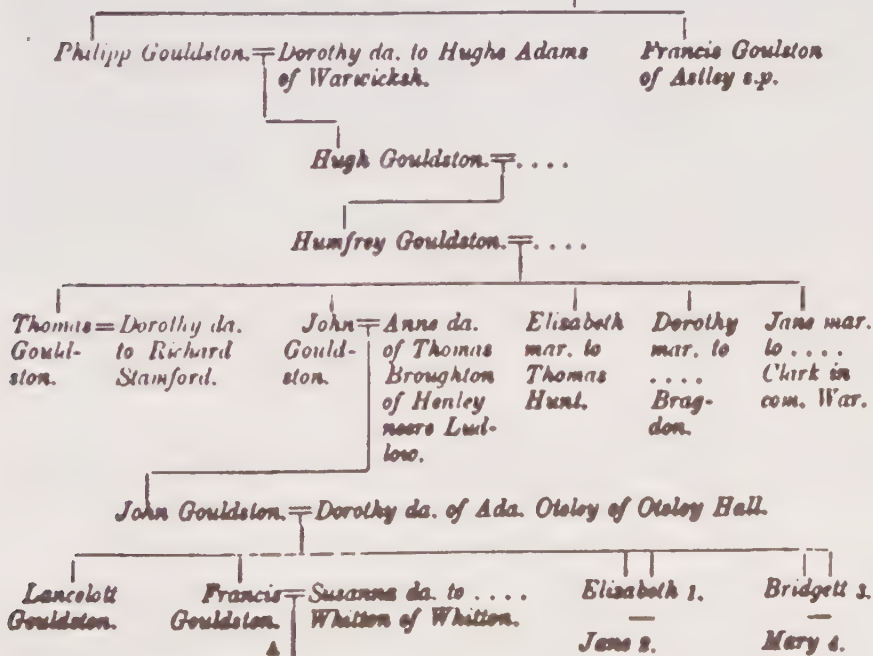 Philipp Gouldston. = Dorothy da. to Hughe Adams
of Warwicksh.
Francis Goulston
of Astley s.p.
Hugh Gouldston. = . . . .
Humfrey Gouldston. = . . . .
Thomas
Gould-
ston.
= Dorothy da.
to Richard
Stamford.
John
Gould-
ston.
= Anne da.
of Thomas
Broughton
of Henley
neere Lud-
low.
Elizabeth
mar. to
Thomas
Hunt.
Dorothy
mar. to
. . . .
Brag-
don.
Jane mar.
to . . . .
Clark in
com. War.
John Gouldston. = Dorothy da. of Ada. Oteley of Oteley Hall.
Lancelott
Gouldston.
Francis
Gouldston.
= Susanna da. to . . . .
Whitton of Whitton.
Elizabeth 1.
Jane 2.
Bridgett 3.
Mary 4.